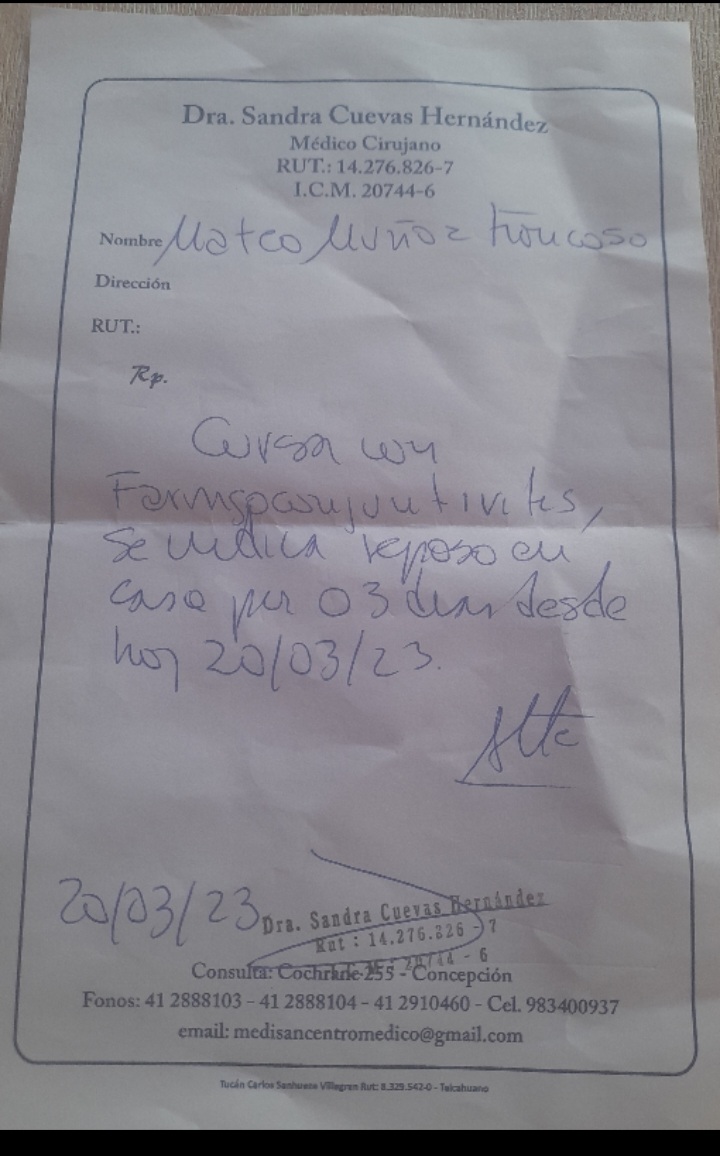 Dra. Sandra Cuevas Hernández
Médico Cirujano
RUT.: 14.276.826-7
I.C.M. 20744-6
Nombre Mateo Muñoz Troncoso
Dirección
RUT.:
Rp.
Cursa con
Faringoconjuntivitis,
se indica reposo en
casa por 03 dias desde
hoy 20/03/23.
Atte
20/03/23
Dra. Sandra Cuevas Hernández
Rut : 14.276.826 - 7
20744 - 6
Consulta: Cochrane 255 - Concepción
Fonos: 41 2888103 - 41 2888104 - 41 2910460 - Cel. 983400937
email: medisancentromedico@gmail.com
Tucán Carlos Sanhueza Villegren Rut: 8.329.542-0 - Talcahuano